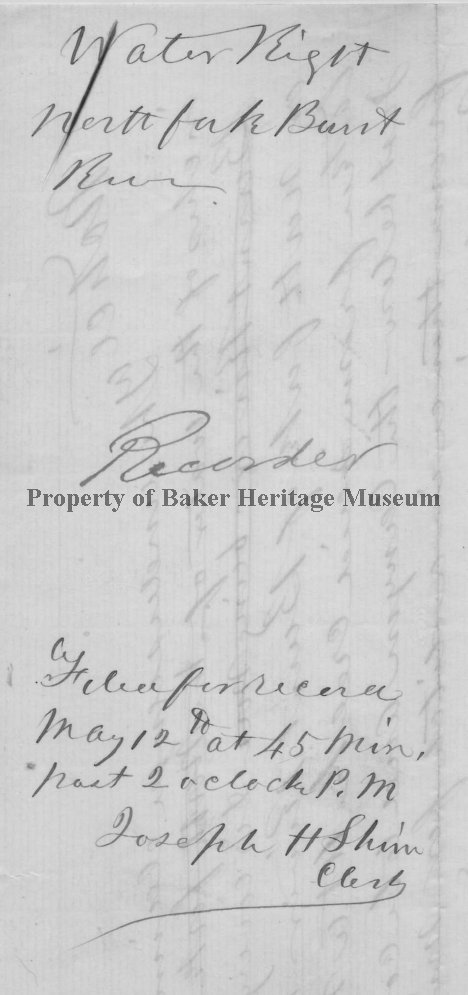 Water Right
North fork Burnt
River
Recorder
Property of Baker Heritage Museum
Filed for record
May 12th at 45 Min.
past 2 oclock P. M
Joseph H Shinn
Clerk